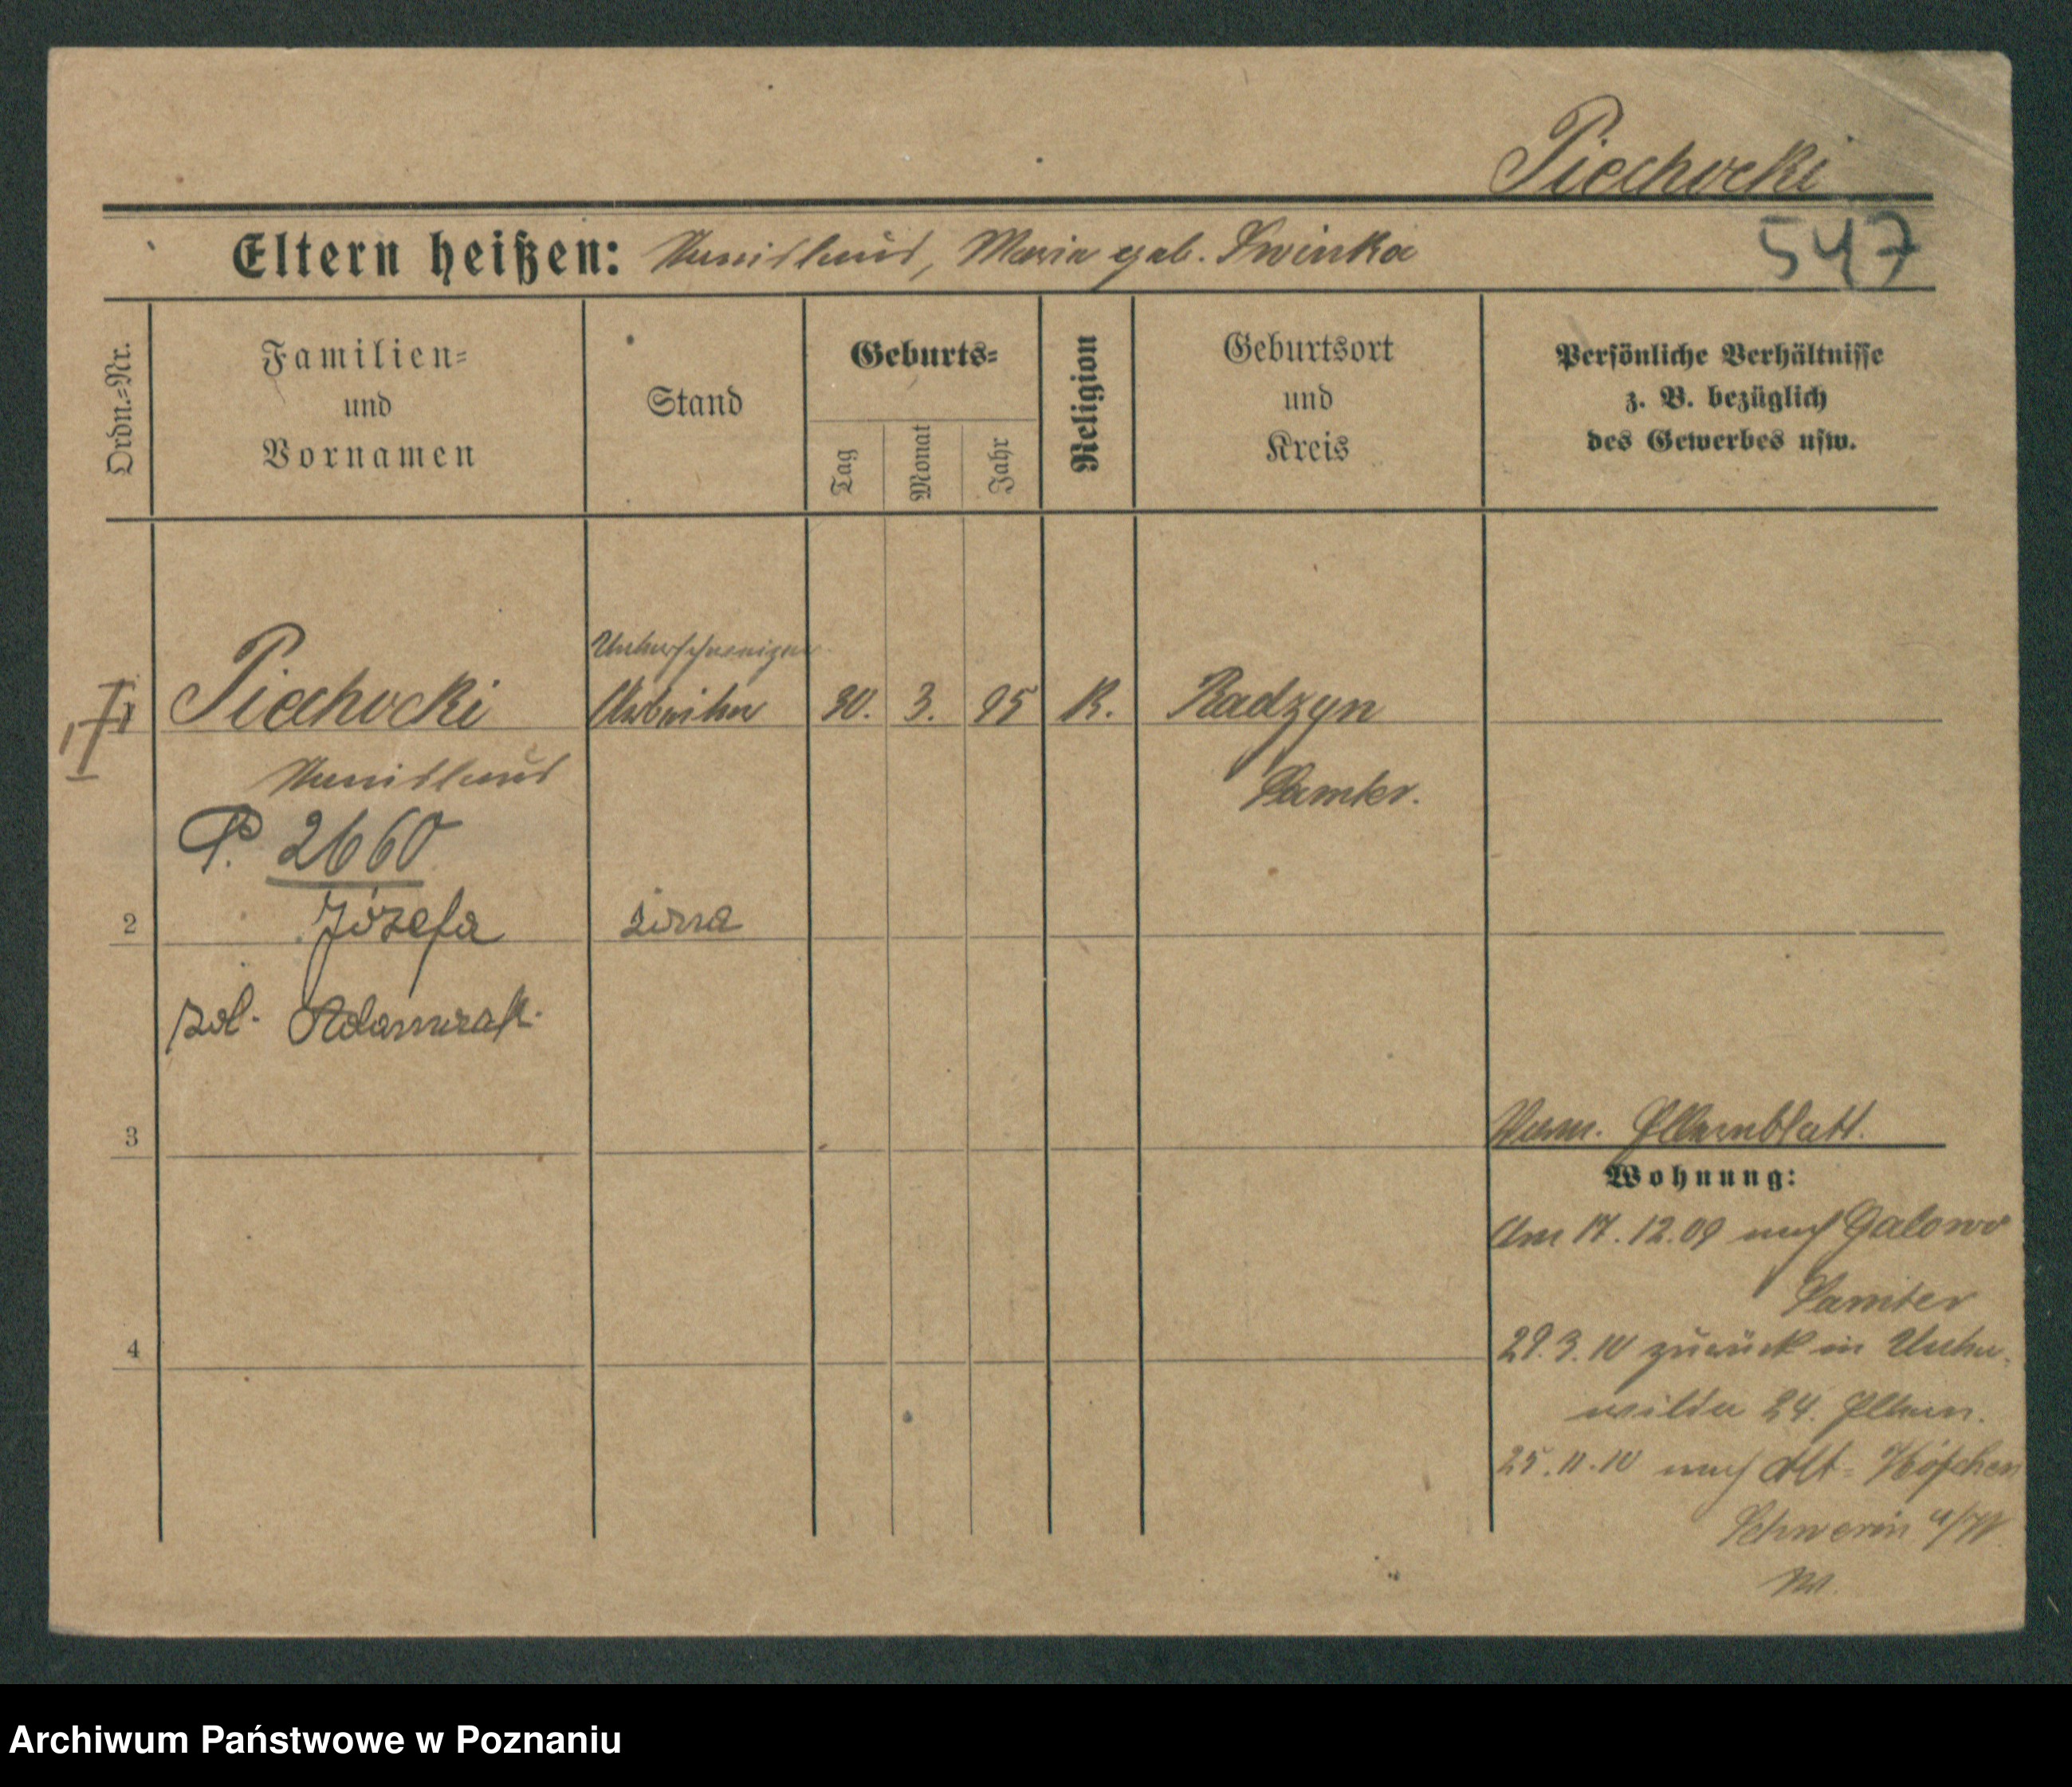 Piechocki
547
Eltern heißen: Stanislaus, Maria geb. Swinka
Ordn.=Nr.
Familien=
und
Vornamen
Stand
Geburts=
Tag
Monat
Jahr
Religion
Geburtsort
und
Kreis
Persönliche Verhältnisse
z. B. bezüglich
des Gewerbes usw.
Piechocki
Arbeiter
30. 3. 95
K.
Radzyn
Stanislaus
Samter.
P. 2660
2
Józefa
żona
zd. Adamczak
3
Elternblatt.
Wohnung:
Am 17.12.09 nach Galowo
Samter
29.3.10 zurück in Unter-
wilda 24. Eltern.
25.11.10 nach Alt-Höfchen
Schwerin a/W.
4
Archiwum Państwowe w Poznaniu